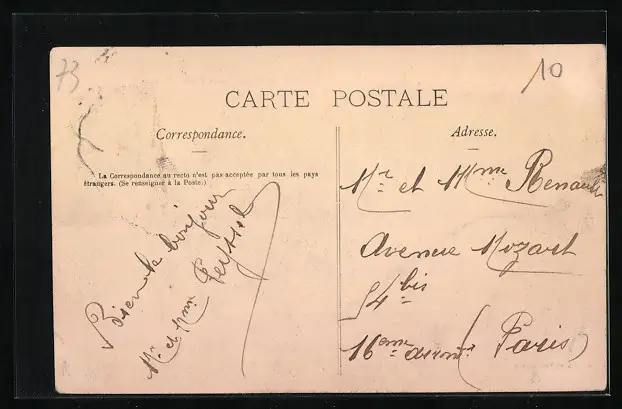 73
10
CARTE POSTALE
Correspondance.
Adresse.
La Correspondance au recto n'est pas acceptée par tous les pays
étrangers. (Se renseigner à la Poste.)
Bien le bonjour
Mr et Mme Peyssel
Mr et Mme Renault
Avenue Mozart
54 bis
16eme arront (Paris)